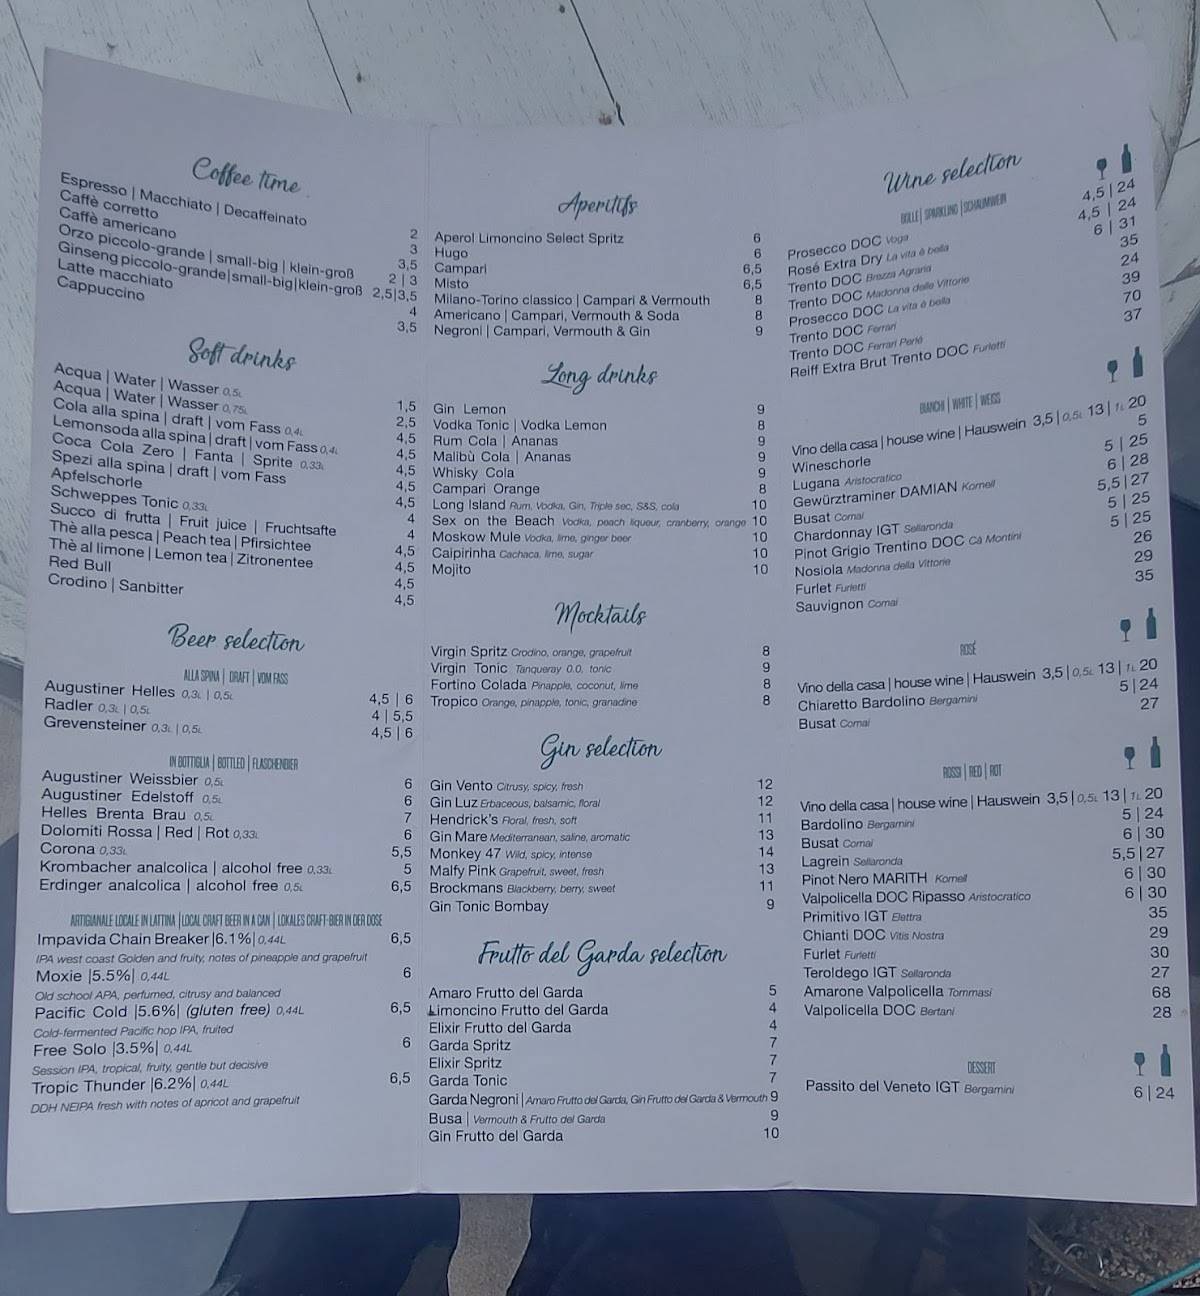 Coffee time
Espresso | Macchiato | Decaffeinato 2
Caffè corretto 3
Caffè americano 3,5
Orzo piccolo-grande | small-big | klein-groß 2 | 3
Ginseng piccolo-grande|small-big|klein-groß 2,5|3,5
Latte macchiato 4
Cappuccino 3,5
Soft drinks
Acqua | Water | Wasser 0,5L 1,5
Acqua | Water | Wasser 0,75L 2,5
Cola alla spina | draft | vom Fass 0,4L 4,5
Lemonsoda alla spina | draft | vom Fass 0,4L 4,5
Coca Cola Zero | Fanta | Sprite 0,33L 4,5
Spezi alla spina | draft | vom Fass 4,5
Apfelschorle 4,5
Schweppes Tonic 0,33L 4
Succo di frutta | Fruit juice | Fruchtsafte 4
Thè alla pesca | Peach tea | Pfirsichtee 4,5
Thè al limone | Lemon tea | Zitronentee 4,5
Red Bull 4,5
Crodino | Sanbitter 4,5
Beer selection
ALLA SPINA | DRAFT | VOM FASS
Augustiner Helles 0,3L | 0,5L 4,5 | 6
Radler 0,3L | 0,5L 4 | 5,5
Grevensteiner 0,3L | 0,5L 4,5 | 6
IN BOTTIGLIA | BOTTLED | FLASCHENBIER
Augustiner Weissbier 0,5L 6
Augustiner Edelstoff 0,5L 6
Helles Brenta Brau 0,5L 7
Dolomiti Rossa | Red | Rot 0,33L 6
Corona 0,33L 5,5
Krombacher analcolica | alcohol free 0,33L 5
Erdinger analcolica | alcohol free 0,5L 6,5
ARTIGIANALE LOCALE IN LATTINA | LOCAL CRAFT BEER IN A CAN | LOKALES CRAFT-BIER IN DER DOSE
Impavida Chain Breaker |6.1%| 0,44L 6,5
IPA west coast Golden and fruity, notes of pineapple and grapefruit
Moxie |5.5%| 0,44L 6
Old school APA, perfumed, citrusy and balanced
Pacific Cold |5.6%| (gluten free) 0,44L 6,5
Cold-fermented Pacific hop IPA, fruited
Free Solo |3.5%| 0,44L 6
Session IPA, tropical, fruity, gentle but decisive
Tropic Thunder |6.2%| 0,44L 6,5
DDH NEIPA fresh with notes of apricot and grapefruit
Aperitifs
Aperol Limoncino Select Spritz 6
Hugo 6
Campari 6,5
Misto 6,5
Milano-Torino classico | Campari & Vermouth 8
Americano | Campari, Vermouth & Soda 8
Negroni | Campari, Vermouth & Gin 9
Long drinks
Gin Lemon 9
Vodka Tonic | Vodka Lemon 8
Rum Cola | Ananas 9
Malibù Cola | Ananas 9
Whisky Cola 9
Campari Orange 8
Long Island Rum, Vodka, Gin, Triple sec, S&S, cola 10
Sex on the Beach Vodka, peach liqueur, cranberry, orange 10
Moskow Mule Vodka, lime, ginger beer 10
Caipirinha Cachaca, lime, sugar 10
Mojito 10
Mocktails
Virgin Spritz Crodino, orange, grapefruit 8
Virgin Tonic Tanqueray 0.0, tonic 9
Fortino Colada Pinapple, coconut, lime 8
Tropico Orange, pinapple, tonic, granadine 8
Gin selection
Gin Vento Citrusy, spicy, fresh 12
Gin Luz Erbaceous, balsamic, floral 12
Hendrick's Floral, fresh, soft 11
Gin Mare Mediterranean, saline, aromatic 13
Monkey 47 Wild, spicy, intense 14
Malfy Pink Grapefruit, sweet, fresh 13
Brockmans Blackberry, berry, sweet 11
Gin Tonic Bombay 9
Frutto del Garda selection
Amaro Frutto del Garda 5
Limoncino Frutto del Garda 4
Elixir Frutto del Garda 4
Garda Spritz 7
Elixir Spritz 7
Garda Tonic 7
Garda Negroni | Amaro Frutto del Garda, Gin Frutto del Garda & Vermouth 9
Busa | Vermouth & Frutto del Garda 9
Gin Frutto del Garda 10
Wine selection
BOLLE | SPARKLING | SCHAUMWEIN
Prosecco DOC Voga 4,5 | 24
Rosé Extra Dry La vita è bella 4,5 | 24
Trento DOC Brezza Agraria 6 | 31
Trento DOC Madonna delle Vittorie 35
Prosecco DOC La vita è bella 24
Trento DOC Ferrari 39
Trento DOC Ferrari Perlé 70
Reiff Extra Brut Trento DOC Furletti 37
BIANCHI | WHITE | WEISS
Vino della casa | house wine | Hauswein 3,5 | 0,5L 13 | 1L 20
Wineschorle 5
Lugana Aristocratico 5 | 25
Gewürztraminer DAMIAN Kornell 6 | 28
Busat Comai 5,5 | 27
Chardonnay IGT Sellaronda 5 | 25
Pinot Grigio Trentino DOC Cà Montini 5 | 25
Nosiola Madonna della Vittorie 26
Furlet Furletti 29
Sauvignon Comai 35
ROSÉ
Vino della casa | house wine | Hauswein 3,5 | 0,5L 13 | 1L 20
Chiaretto Bardolino Bergamini 5 | 24
Busat Comai 27
ROSSI | RED | ROT
Vino della casa | house wine | Hauswein 3,5 | 0,5L 13 | 1L 20
Bardolino Bergamini 5 | 24
Busat Comai 6 | 30
Lagrein Sellaronda 5,5 | 27
Pinot Nero MARITH Kornell 6 | 30
Valpolicella DOC Ripasso Aristocratico 6 | 30
Primitivo IGT Elettra 35
Chianti DOC Vitis Nostra 29
Furlet Furletti 30
Teroldego IGT Sellaronda 27
Amarone Valpolicella Tommasi 68
Valpolicella DOC Bertani 28
DESSERT
Passito del Veneto IGT Bergamini 6 | 24